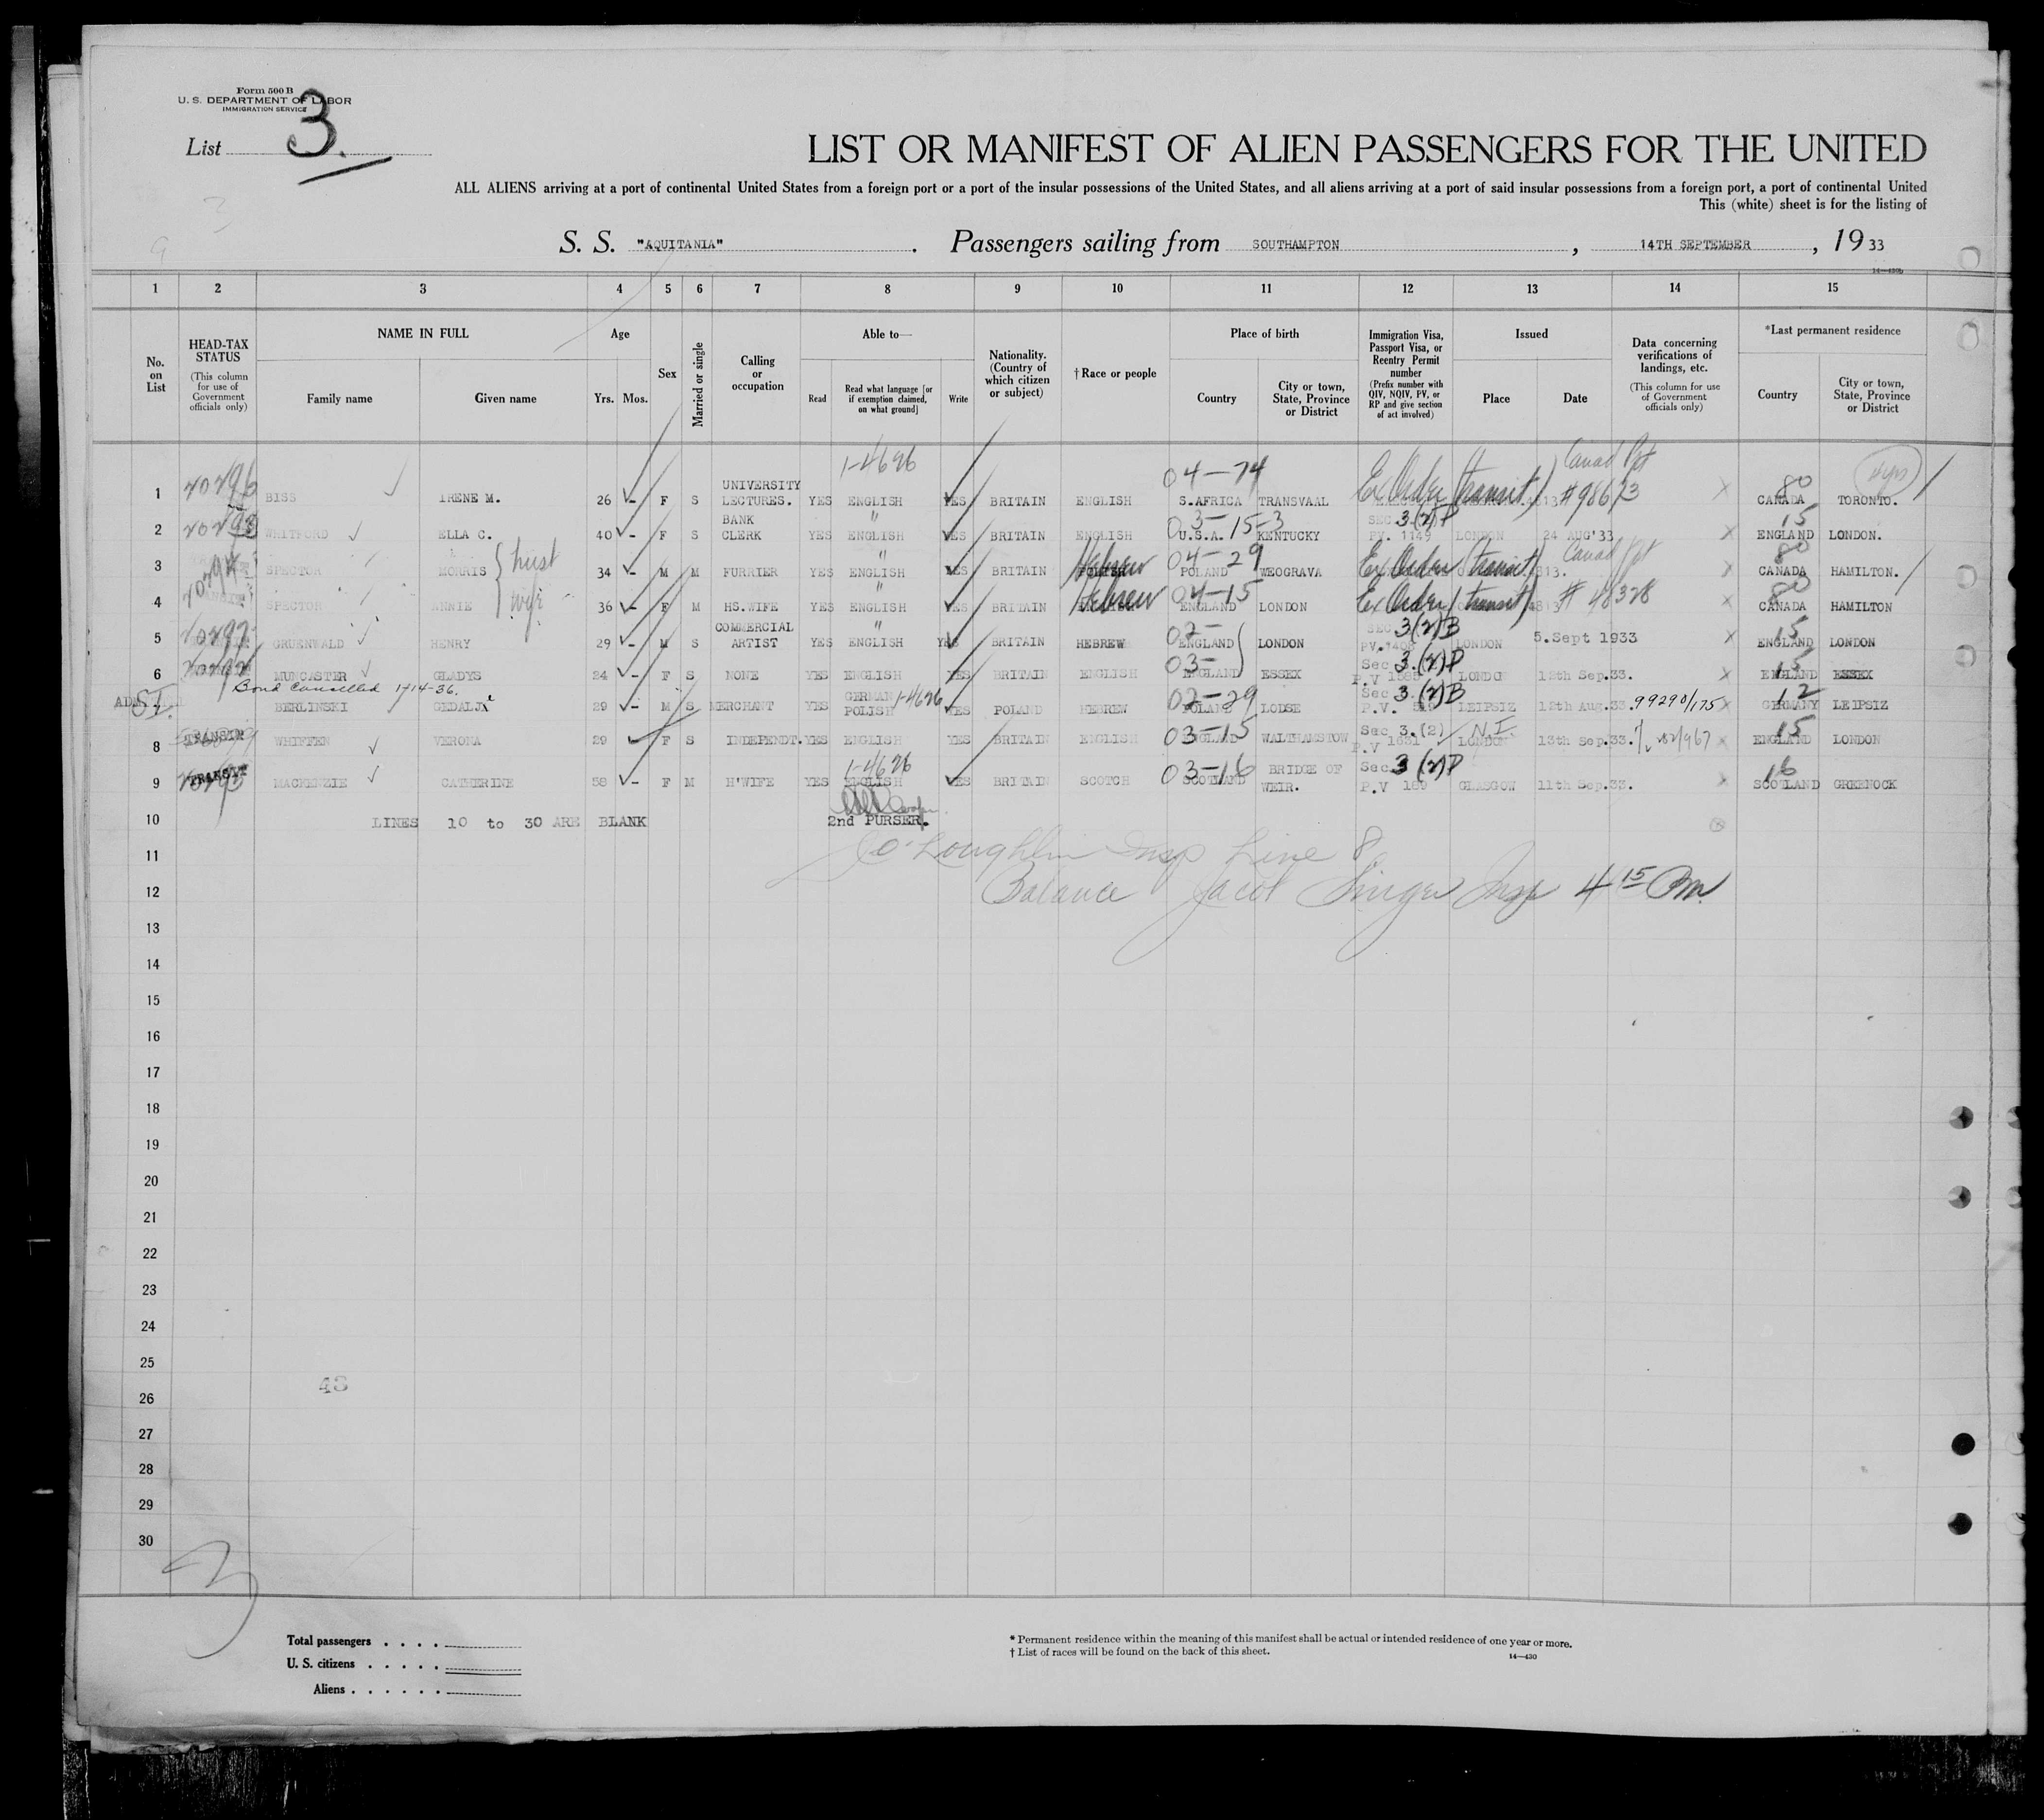 Form 500 B
U. S. DEPARTMENT OF LABOR
IMMIGRATION SERVICE
List 3.
LIST OR MANIFEST OF ALIEN PASSENGERS FOR THE UNITED
ALL ALIENS arriving at a port of continental United States from a foreign port or a port of the insular possessions of the United States, and all aliens arriving at a port of said insular possessions from a foreign port, a port of continental United
This (white) sheet is for the listing of
S. S. "AQUITANIA" . Passengers sailing from SOUTHAMPTON , 14TH SEPTEMBER , 19 33
1 2 3 4 5 6 7 8 9 10 11 12 13 14 15
No. on List
HEAD-TAX STATUS (This column for use of Government officials only)
NAME IN FULL Family name Given name
Age Yrs. Mos.
Sex
Married or single
Calling or occupation
Able to— Read Read what language [or if exemption claimed, on what ground] Write
Nationality. (Country of which citizen or subject)
†Race or people
Place of birth Country City or town, State, Province or District
Immigration Visa, Passport Visa, or Reentry Permit number (Prefix number with QIV, NQIV, PV, or RP and give section of act involved)
Issued Place Date
Data concerning verifications of landings, etc. (This column for use of Government officials only)
*Last permanent residence Country City or town, State, Province or District
1-4696 04-74 Canad Ppt
1 BISS IRENE M. 26 - F S UNIVERSITY LECTURES. YES ENGLISH YES BRITAIN ENGLISH S.AFRICA TRANSVAAL Ex Order (transit) #98673 80 CANADA TORONTO.
2 WHITFORD ELLA C. 40 - F S BANK CLERK YES " ENGLISH YES BRITAIN ENGLISH 03-15-3 U.S.A. KENTUCKY SEC 3(2)P PV. 1149 LONDON 24 AUG'33 15 ENGLAND LONDON.
3 SPECTOR MORRIS { husb 34 - M M FURRIER YES " ENGLISH YES BRITAIN Hebrew 04-29 POLAND WEOGRAVA Ex Order (transit) Canad Ppt 80 CANADA HAMILTON.
4 SPECTOR ANNIE wife 36 - F M HS.WIFE YES " ENGLISH YES BRITAIN Hebrew 04-15 ENGLAND LONDON Ex Order (transit) # 48328 80 CANADA HAMILTON
5 GRUENWALD HENRY 29 - M S COMMERCIAL ARTIST YES " ENGLISH YES BRITAIN HEBREW 02- ENGLAND LONDON SEC 3(2)B PV.1408 LONDON 5.Sept 1933 15 ENGLAND LONDON
6 MUNCASTER GLADYS 24 - F S NONE YES ENGLISH YES BRITAIN ENGLISH 03- ENGLAND ESSEX Sec 3.(2)P P.V 1585 LONDON 12th Sep.33. 15 ENGLAND ESSEX
Bond Cancelled 1-14-36.
SI. BERLINSKI GEDALJE 29 - M S MERCHANT YES GERMAN POLISH 1-4626 YES POLAND HEBREW 02-29 POLAND LODSE Sec 3(2)B P.V. LEIPSIZ 12th Aug.33. 99290/175 12 GERMANY LEIPSIZ
8 TRANSIT WHIFFEN VERONA 29 F S INDEPENDT. YES ENGLISH YES BRITAIN ENGLISH 03-15 ENGLAND WALTHAMSTOW Sec 3.(2) P.V 1631 N.I. LONDON 13th Sep.33. 15 ENGLAND LONDON
9 TRANSIT MACKENZIE CATHERINE 58 - F M H'WIFE YES 1-4626 ENGLISH YES BRITAIN SCOTCH 03-16 SCOTLAND BRIDGE OF WEIR. Sec. 3(2)P P.V 189 GLASGOW 11th Sep.33. 16 SCOTLAND GREENOCK
10 LINES 10 to 30 ARE BLANK 2nd PURSER.
11 O'Loughlin Insp Line 8
12 Balance Jacob Singer Insp 4 15 Pm
13
14
15
16
17
18
19
20
21
22
23
24
25
26 43
27
28
29
30
Total passengers . . . .
U. S. citizens . . . . .
Aliens . . . . . .
* Permanent residence within the meaning of this manifest shall be actual or intended residence of one year or more.
† List of races will be found on the back of this sheet.
14—430